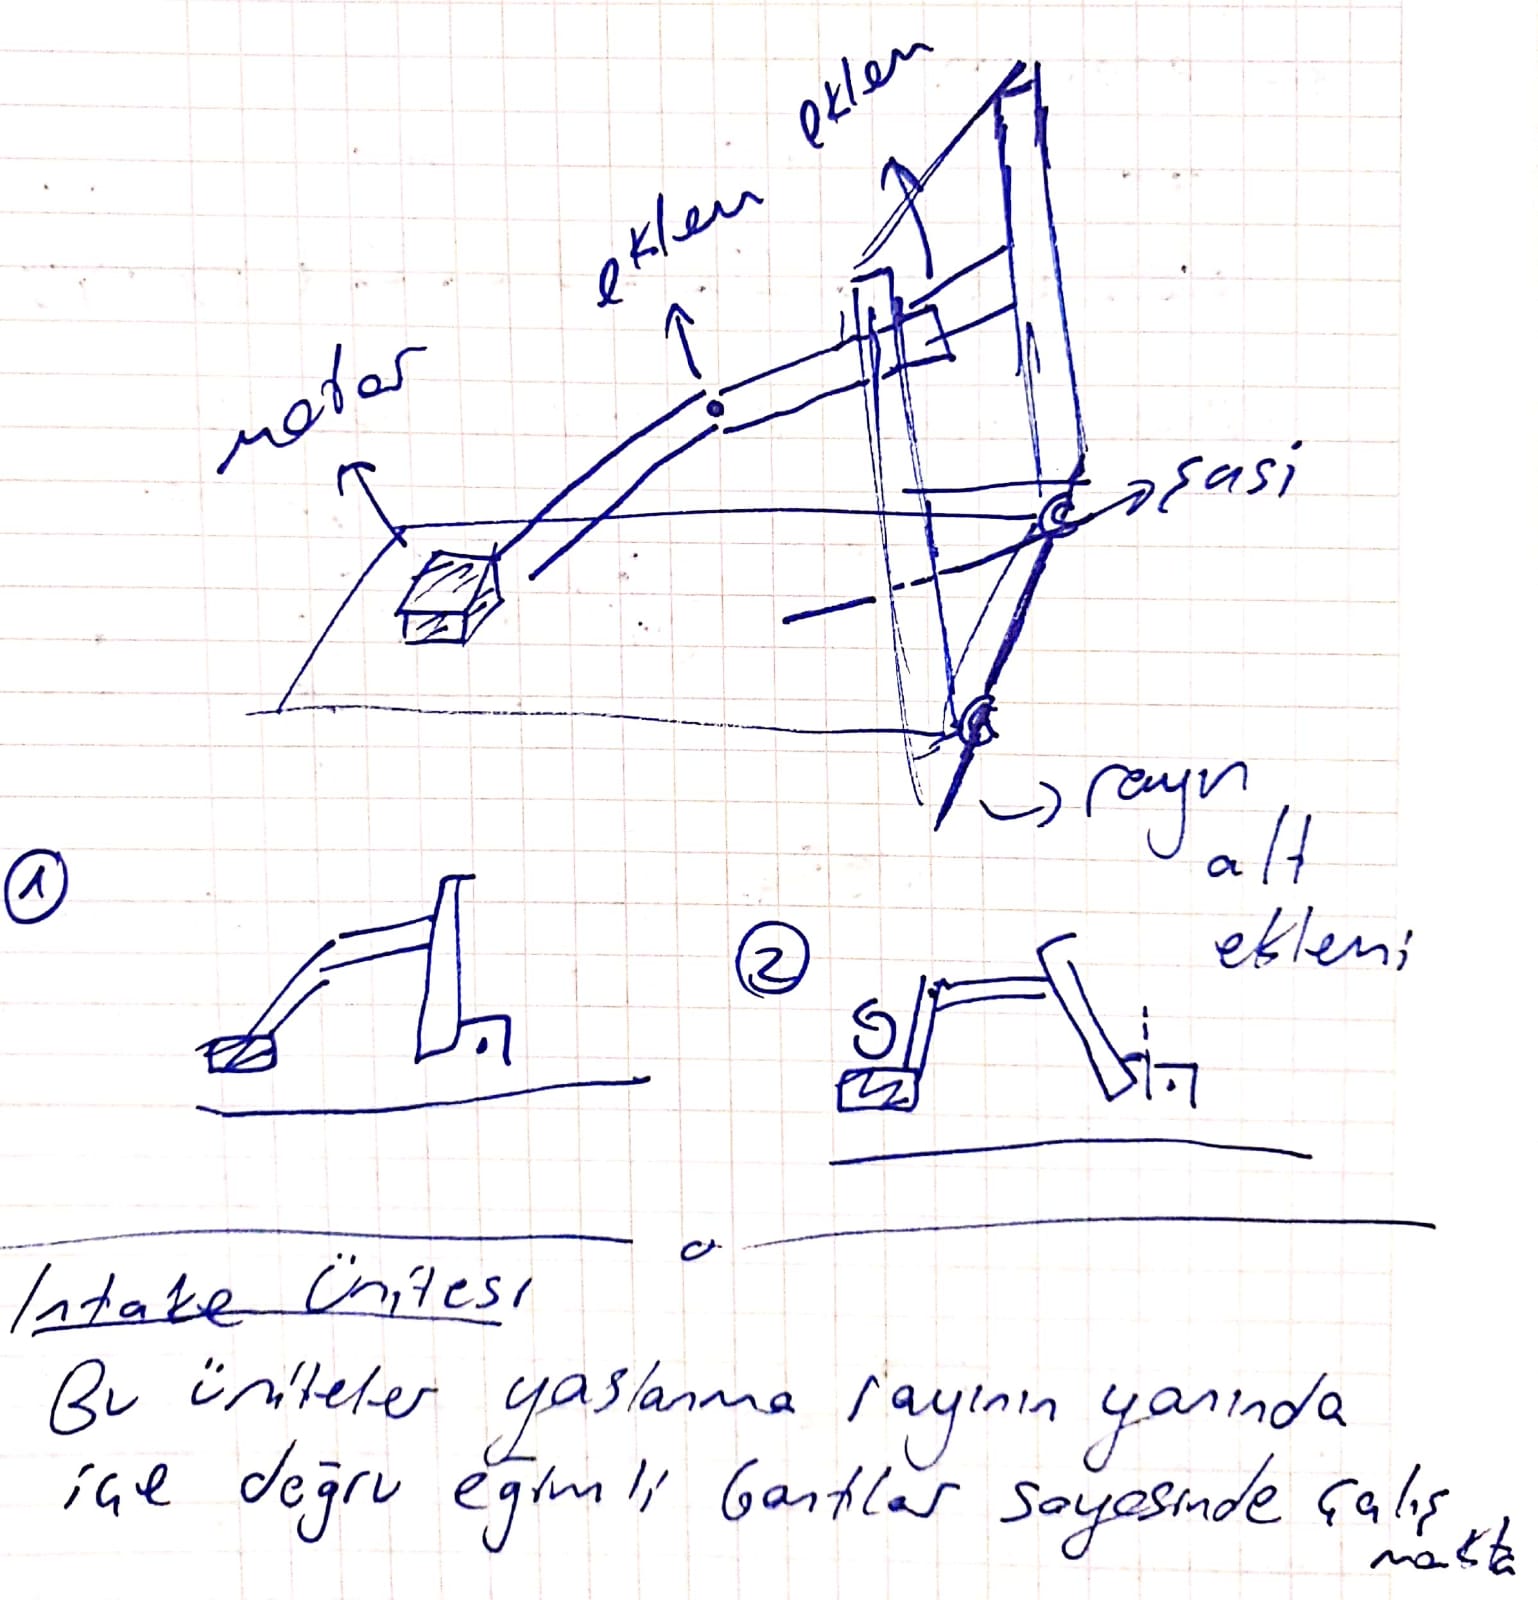 eklem
eklem
motor
şasi
rayın
alt
eklemi
1
2
Intake Ünitesi
Bu üniteler yaslanma rayının yanında
içe doğru eğimli bantlar sayesinde çalış
makta